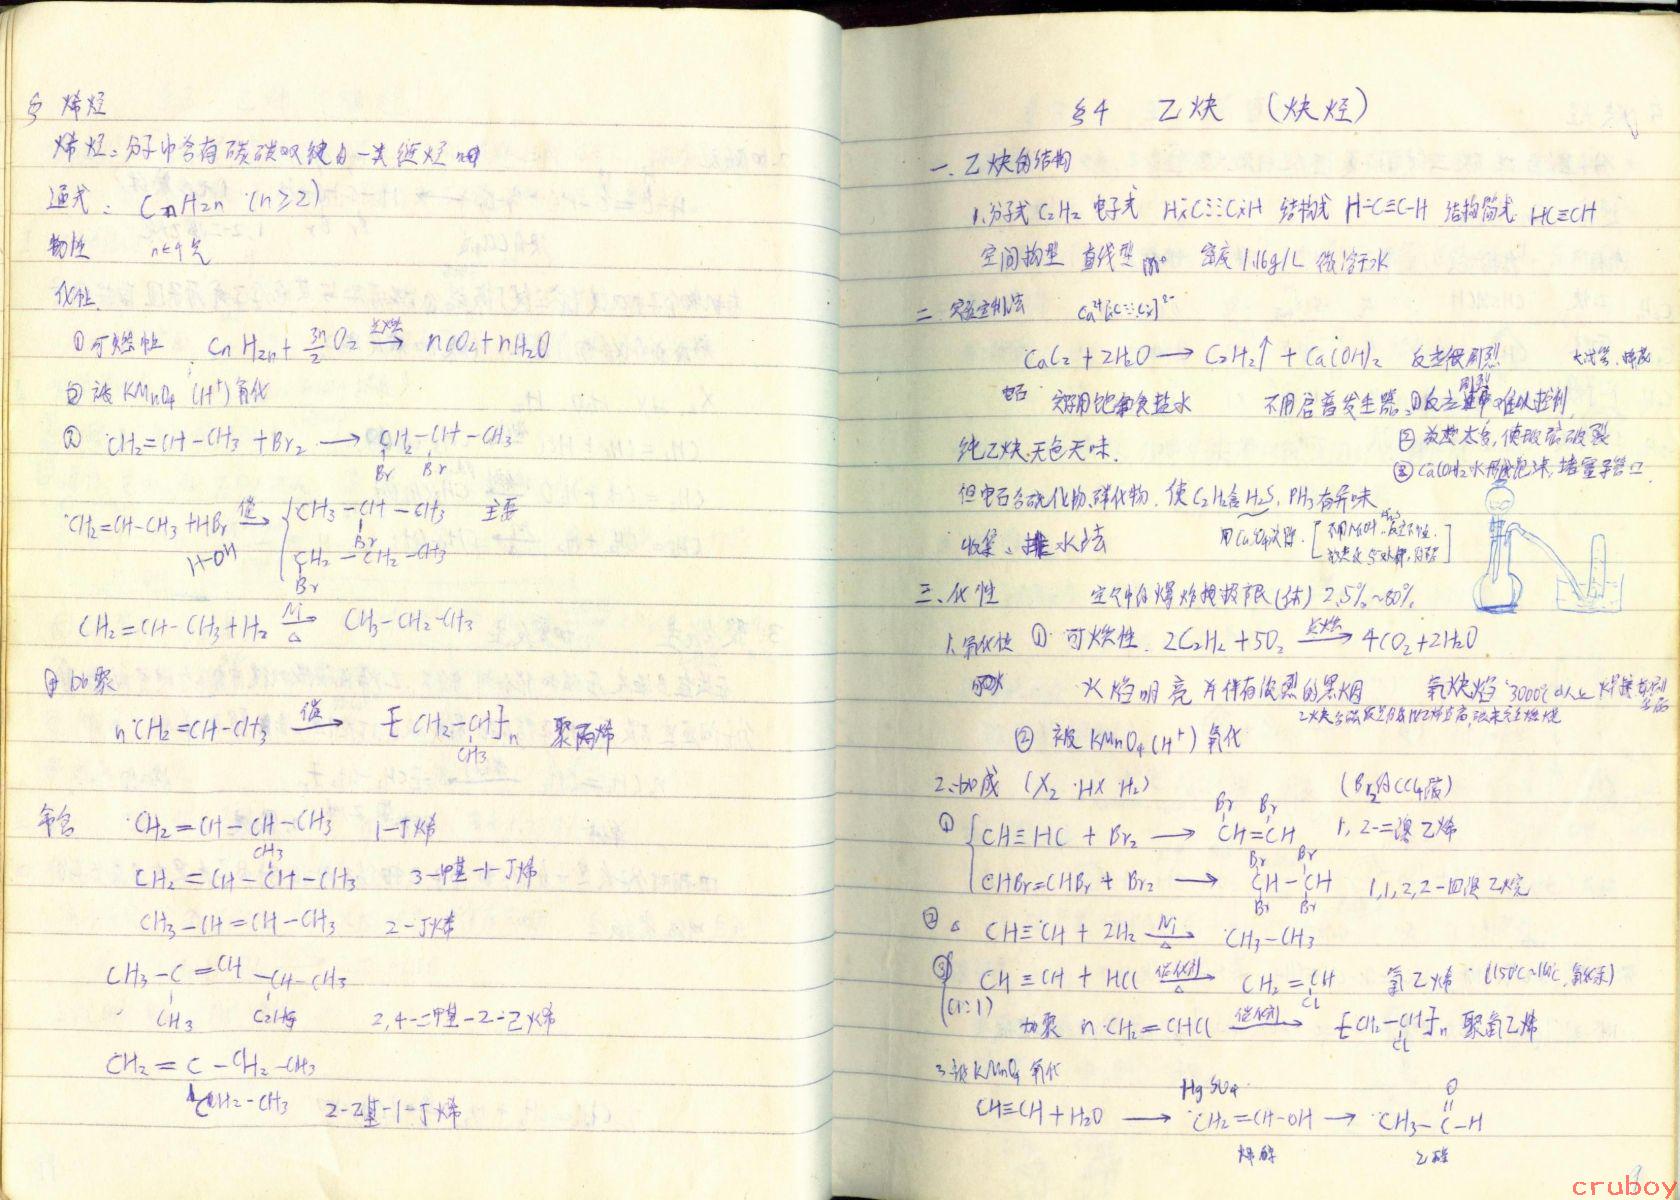 § 烯烃
烯烃:分子中含有碳碳双键的一类链烃
通式: CnH2n (n≥2)
物性 n≤4 气
化性
①可燃性 CnH2n + 3n/2 O2 —点燃→ nCO2+nH2O
②被KMnO4 (H⁺)氧化
② CH2=CH-CH3 +Br2 ⟶ CH2-CH-CH3
Br Br
CH2=CH-CH3+HBr —催→ { CH3-CH-CH3 主要
H-OH Br
CH2-CH2-CH3
Br
CH2=CH-CH3+H2 —Ni/△→ CH3-CH2-CH3
④加聚
nCH2=CH-CH3 —催→ [CH2-CH]n 聚丙烯
CH3
命名 CH2=CH-CH-CH3 1-丁烯
CH3
CH2=CH-CH-CH3 3-甲基-1-丁烯
CH3-CH=CH-CH3 2-丁烯
CH3-C=CH-CH-CH3
CH3 C2H5 2,4-二甲基-2-己烯
CH2=C-CH2-CH3
CH2-CH3 2-乙基-1-丁烯
§4 乙炔 (炔烃)
一.乙炔的结构
1.分子式 C2H2 电子式 H×C⋮⋮C×H 结构式 H-C≡C-H 结构简式 HC≡CH
空间构型 直线型 180° 密度1.16g/L 微溶于水
二.实验室制法 Ca²⁺[:C⋮⋮C:]²⁻
CaC2 + 2H2O ⟶ C2H2↑ + Ca(OH)2 反应很剧烈
电石 常用饱和食盐水 不用启普发生器:①反应剧烈难以控制
②放热太多,使玻璃破裂
纯乙炔,无色无味. ③Ca(OH)2水形成泡沫,堵塞导管口
但电石含硫化物,磷化物.使C2H2含H2S,PH3有异味
收集:排水法 用CuSO4洗除.
三.化性 空气中的爆炸极限(体) 2.5%~80%
1.氧化性 ① 可燃性. 2C2H2+5O2 —点燃→ 4CO2+2H2O
火焰明亮并伴有浓烈的黑烟 氧炔焰 3000℃以上
② 被KMnO4(H⁺)氧化
2.加成 (X2 HX H2) (Br2的CCl4液)
Br Br
① { CH≡HC + Br2 ⟶ CH=CH 1,2-二溴乙烯
Br Br
CHBr=CHBr + Br2 ⟶ CH-CH 1,1,2,2-四溴乙烷
Br Br
② CH≡CH + 2H2 —Ni/△→ CH3-CH3
③ CH≡CH + HCl —催化剂/△→ CH2=CH 氯乙烯
(1:1) Cl
加聚 nCH2=CHCl —催化剂→ [CH2-CH]n 聚氯乙烯
Cl
3.被KMnO4氧化
HgSO4 O
CH≡CH+H2O ⟶ CH2=CH-OH ⟶ CH3-C-H
烯醇 乙醛
cruboy